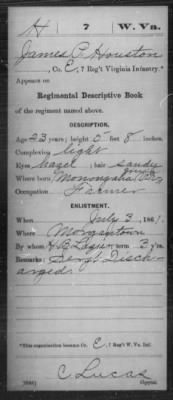 H | 7 | W. Va.
James P. Houston
, Co. E, 7 Reg't Virginia Infantry.*
Appears on
Regimental Descriptive Book
of the regiment named above.
DESCRIPTION.
Age 23 years; height 5 feet 8 inches.
Complexion light
Eyes hazel; hair sandy
Where born Monongalia
Occupation Farmer
ENLISTMENT.
When July 3, 1861.
Where Morgantown
By whom H. B. Lazier; term 3 y'rs.
Remarks: Serg't Disch-
arged
*This organization became Co. E, 7 Reg't W. Va. Inf.
C. Lucas
Copyist.